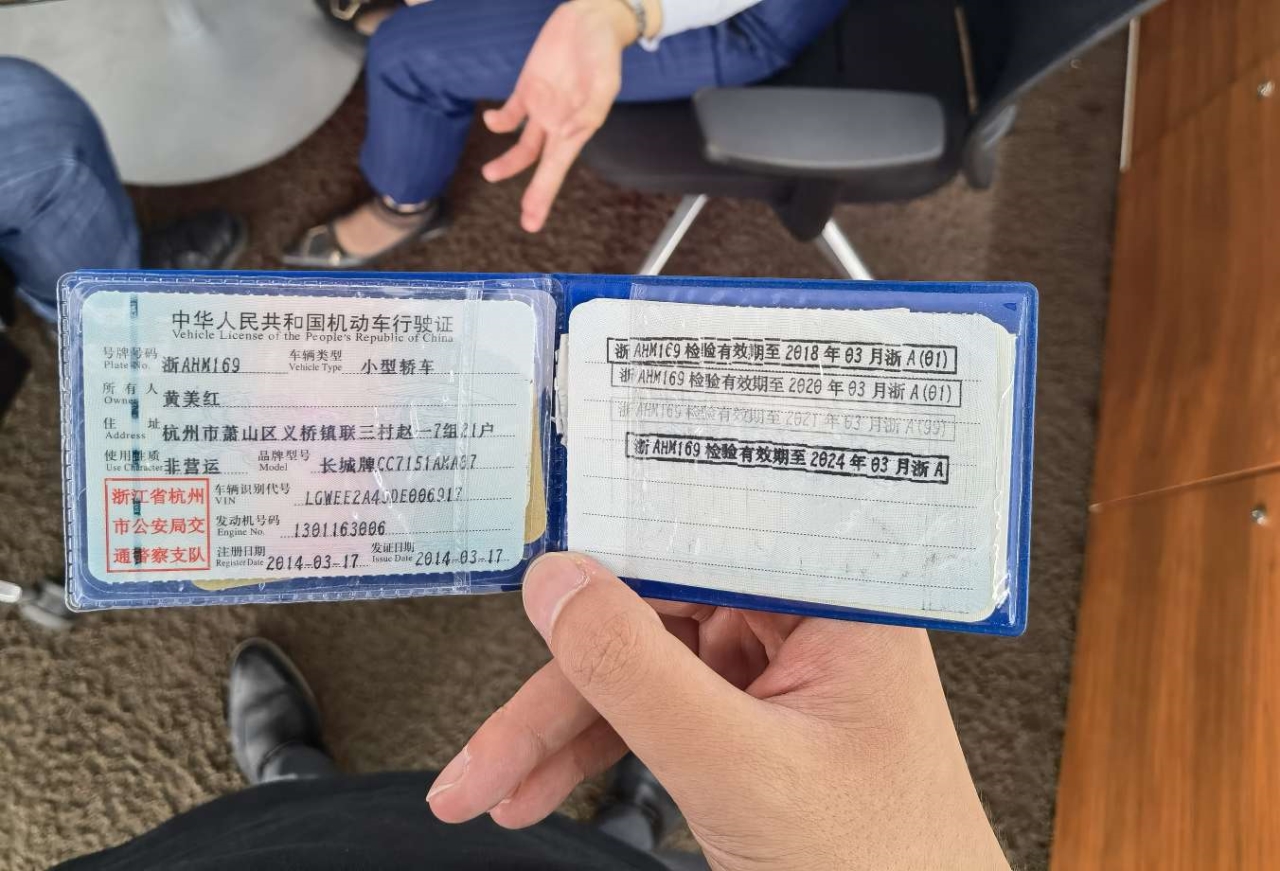 中华人民共和国机动车行驶证
Vehicle License of the People's Republic of China
号牌号码 浙AHM169 车辆类型 小型轿车
Plate No. Vehicle Type
所有人 黄美红
Owner
住址 杭州市萧山区义桥镇联三村赵一7组21户
Address
使用性质 非营运 品牌型号 长城牌CC7151AMA07
Use Character Model
浙江省杭州
市公安局交
通警察支队
车辆识别代号
VIN
发动机号码 1301163006
Engine No.
注册日期 2014-03-17 发证日期 2014-03-17
Register Date Issue Date
浙AHM169检验有效期至2018年03月浙A(01)
浙AHM169检验有效期至2020年03月浙A(01)
浙AHM169检验有效期至2021年03月浙A(99)
浙AHM169检验有效期至2024年03月浙A